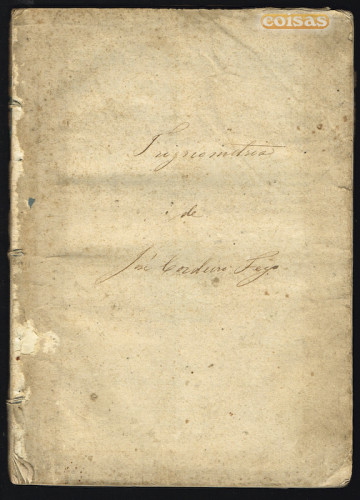 coisas
Trigriometria
de
José Cordeiro Feyo